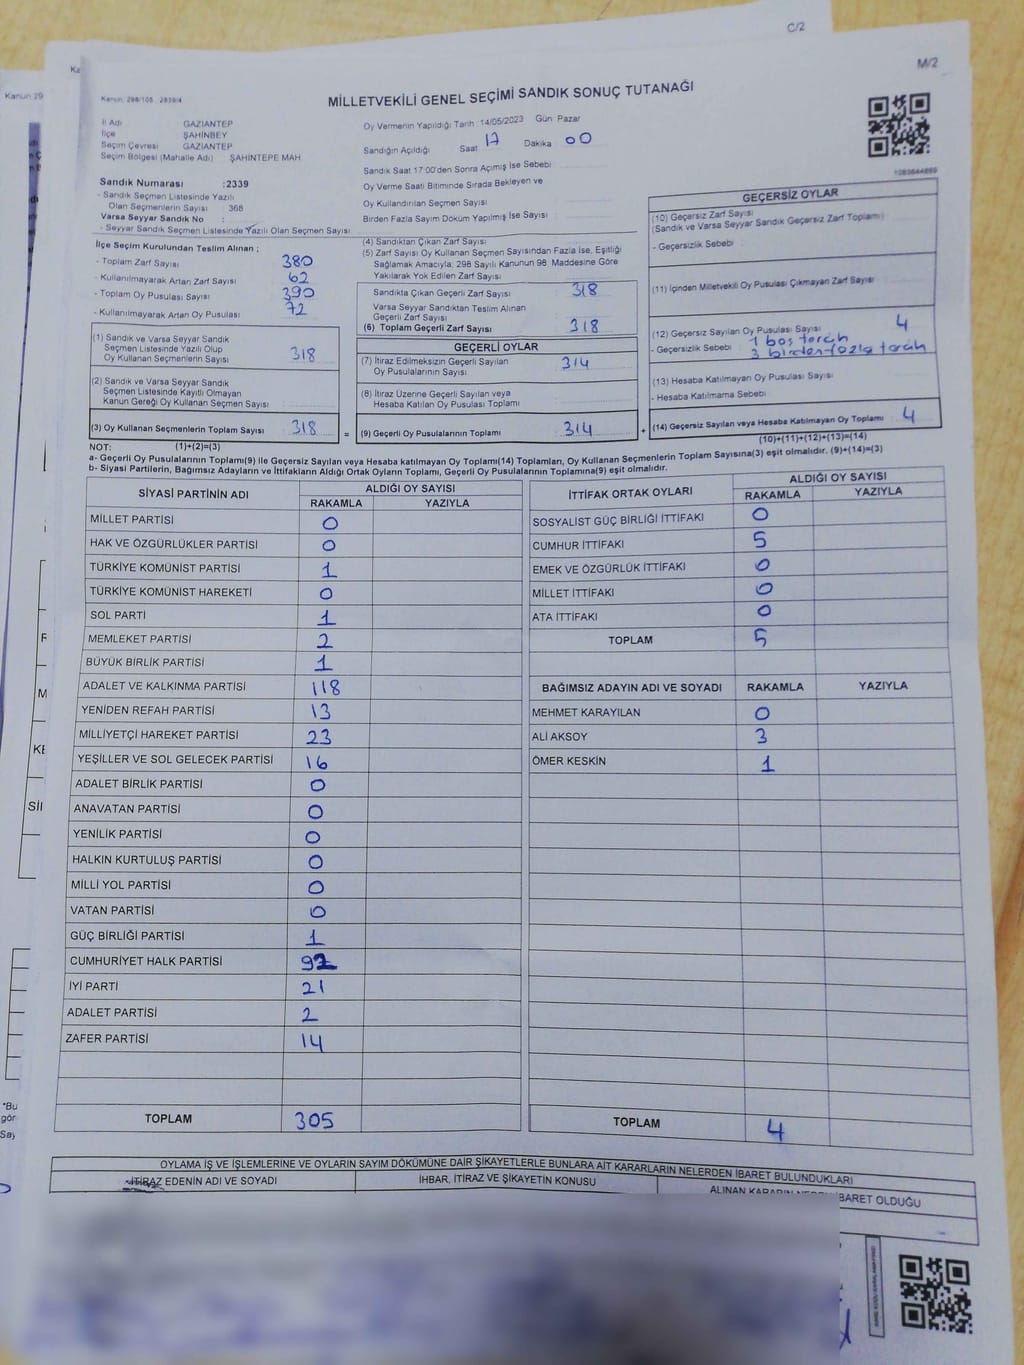 C/2
M/2
Kanun: 298/105, 2839/4
MİLLETVEKİLİ GENEL SEÇİMİ SANDIK SONUÇ TUTANAĞI
İl Adı GAZİANTEP
İlçe ŞAHİNBEY
Seçim Çevresi GAZİANTEP
Seçim Bölgesi (Mahalle Adı) ŞAHİNTEPE MAH
Oy Vermenin Yapıldığı Tarih :14/05/2023 Gün Pazar
Sandığın Açıldığı Saat 17 Dakika 00
Sandık Saat 17:00'den Sonra Açımış İse Sebebi
Oy Verme Saati Bitiminde Sırada Bekleyen ve
Oy Kullandırılan Seçmen Sayısı
Birden Fazla Sayım Döküm Yapılmış İse Sayısı
Sandık Numarası :2339
- Sandık Seçmen Listesinde Yazılı
Olan Seçmenlerin Sayısı 368
Varsa Seyyar Sandık No :
- Seyyar Sandık Seçmen Listesinde Yazılı Olan Seçmen Sayısı
İlçe Seçim Kurulundan Teslim Alınan ;
- Toplam Zarf Sayısı 380
- Kullanılmayarak Artan Zarf Sayısı 62
- Toplam Oy Pusulası Sayısı 390
- Kullanılmayarak Artan Oy Pusulası 72
(1) Sandık ve Varsa Seyyar Sandık
Seçmen Listesinde Yazılı Olup
Oy Kullanan Seçmenlerin Sayısı 318
(2) Sandık ve Varsa Seyyar Sandık
Seçmen Listesinde Kayıtlı Olmayan
Kanun Gereği Oy Kullanan Seçmen Sayısı
(3) Oy Kullanan Seçmenlerin Toplam Sayısı 318
(4) Sandıktan Çıkan Zarf Sayısı
(5) Zarf Sayısı Oy Kullanan Seçmen Sayısından Fazla İse, Eşitliği
Sağlamak Amacıyla; 298 Sayılı Kanunun 98. Maddesine Göre
Yakılarak Yok Edilen Zarf Sayısı
Sandıkta Çıkan Geçerli Zarf Sayısı 318
Varsa Seyyar Sandıktan Teslim Alınan
Geçerli Zarf Sayısı
(6) Toplam Geçerli Zarf Sayısı 318
GEÇERLİ OYLAR
(7) İtiraz Edilmeksizin Geçerli Sayılan
Oy Pusulalarının Sayısı 314
(8) İtiraz Üzerine Geçerli Sayılan veya
Hesaba Katılan Oy Pusulası Toplamı
= (9) Geçerli Oy Pusulalarının Toplamı 314 +
GEÇERSİZ OYLAR
(10) Geçersiz Zarf Sayısı
(Sandık ve Varsa Seyyar Sandık Geçersiz Zarf Toplamı)
- Geçersizlik Sebebi
(11) İçinden Milletvekili Oy Pusulası Çıkmayan Zarf Sayısı
(12) Geçersiz Sayılan Oy Pusulası Sayısı 4
- Geçersizlik Sebebi 1 boş tercih
3 birden fazla tercih
(13) Hesaba Katılmayan Oy Pusulası Sayısı
- Hesaba Katılmama Sebebi
(14) Geçersiz Sayılan veya Hesaba Katılmayan Oy Toplamı 4
NOT: (1)+(2)=(3)
(10)+(11)+(12)+(13)=(14)
a- Geçerli Oy Pusulalarının Toplamı(9) ile Geçersiz Sayılan veya Hesaba Katılmayan Oy Toplamı(14) Toplamları, Oy Kullanan Seçmenlerin Toplam Sayısına(3) eşit olmalıdır. (9)+(14)=(3)
b- Siyasi Partilerin, Bağımsız Adayların ve İttifakların Aldığı Ortak Oyların Toplamı, Geçerli Oy Pusulalarının Toplamına(9) eşit olmalıdır.
SİYASİ PARTİNİN ADI ALDIĞI OY SAYISI
RAKAMLA YAZIYLA
MİLLET PARTİSİ 0
HAK VE ÖZGÜRLÜKLER PARTİSİ 0
TÜRKİYE KOMÜNİST PARTİSİ 1
TÜRKİYE KOMÜNİST HAREKETİ 0
SOL PARTİ 1
MEMLEKET PARTİSİ 2
BÜYÜK BİRLİK PARTİSİ 1
ADALET VE KALKINMA PARTİSİ 118
YENİDEN REFAH PARTİSİ 13
MİLLİYETÇİ HAREKET PARTİSİ 23
YEŞİLLER VE SOL GELECEK PARTİSİ 16
ADALET BİRLİK PARTİSİ 0
ANAVATAN PARTİSİ 0
YENİLİK PARTİSİ 0
HALKIN KURTULUŞ PARTİSİ 0
MİLLİ YOL PARTİSİ 0
VATAN PARTİSİ 0
GÜÇ BİRLİĞİ PARTİSİ 1
CUMHURİYET HALK PARTİSİ 92
İYİ PARTİ 21
ADALET PARTİSİ 2
ZAFER PARTİSİ 14
TOPLAM 305
İTTİFAK ORTAK OYLARI ALDIĞI OY SAYISI
RAKAMLA YAZIYLA
SOSYALİST GÜÇ BİRLİĞİ İTTİFAKI 0
CUMHUR İTTİFAKI 5
EMEK VE ÖZGÜRLÜK İTTİFAKI 0
MİLLET İTTİFAKI 0
ATA İTTİFAKI 0
TOPLAM 5
BAĞIMSIZ ADAYIN ADI VE SOYADI RAKAMLA YAZIYLA
MEHMET KARAYILAN 0
ALİ AKSOY 3
ÖMER KESKİN 1
TOPLAM 4
OYLAMA İŞ VE İŞLEMLERİNE VE OYLARIN SAYIM DÖKÜMÜNE DAİR ŞİKAYETLERLE BUNLARA AİT KARARLARIN NELERDEN İBARET BULUNDUKLARI
İTİRAZ EDENİN ADI VE SOYADI
İHBAR, İTİRAZ VE ŞİKAYETİN KONUSU
ALINAN KARARIN NEDEN İBARET OLDUĞU